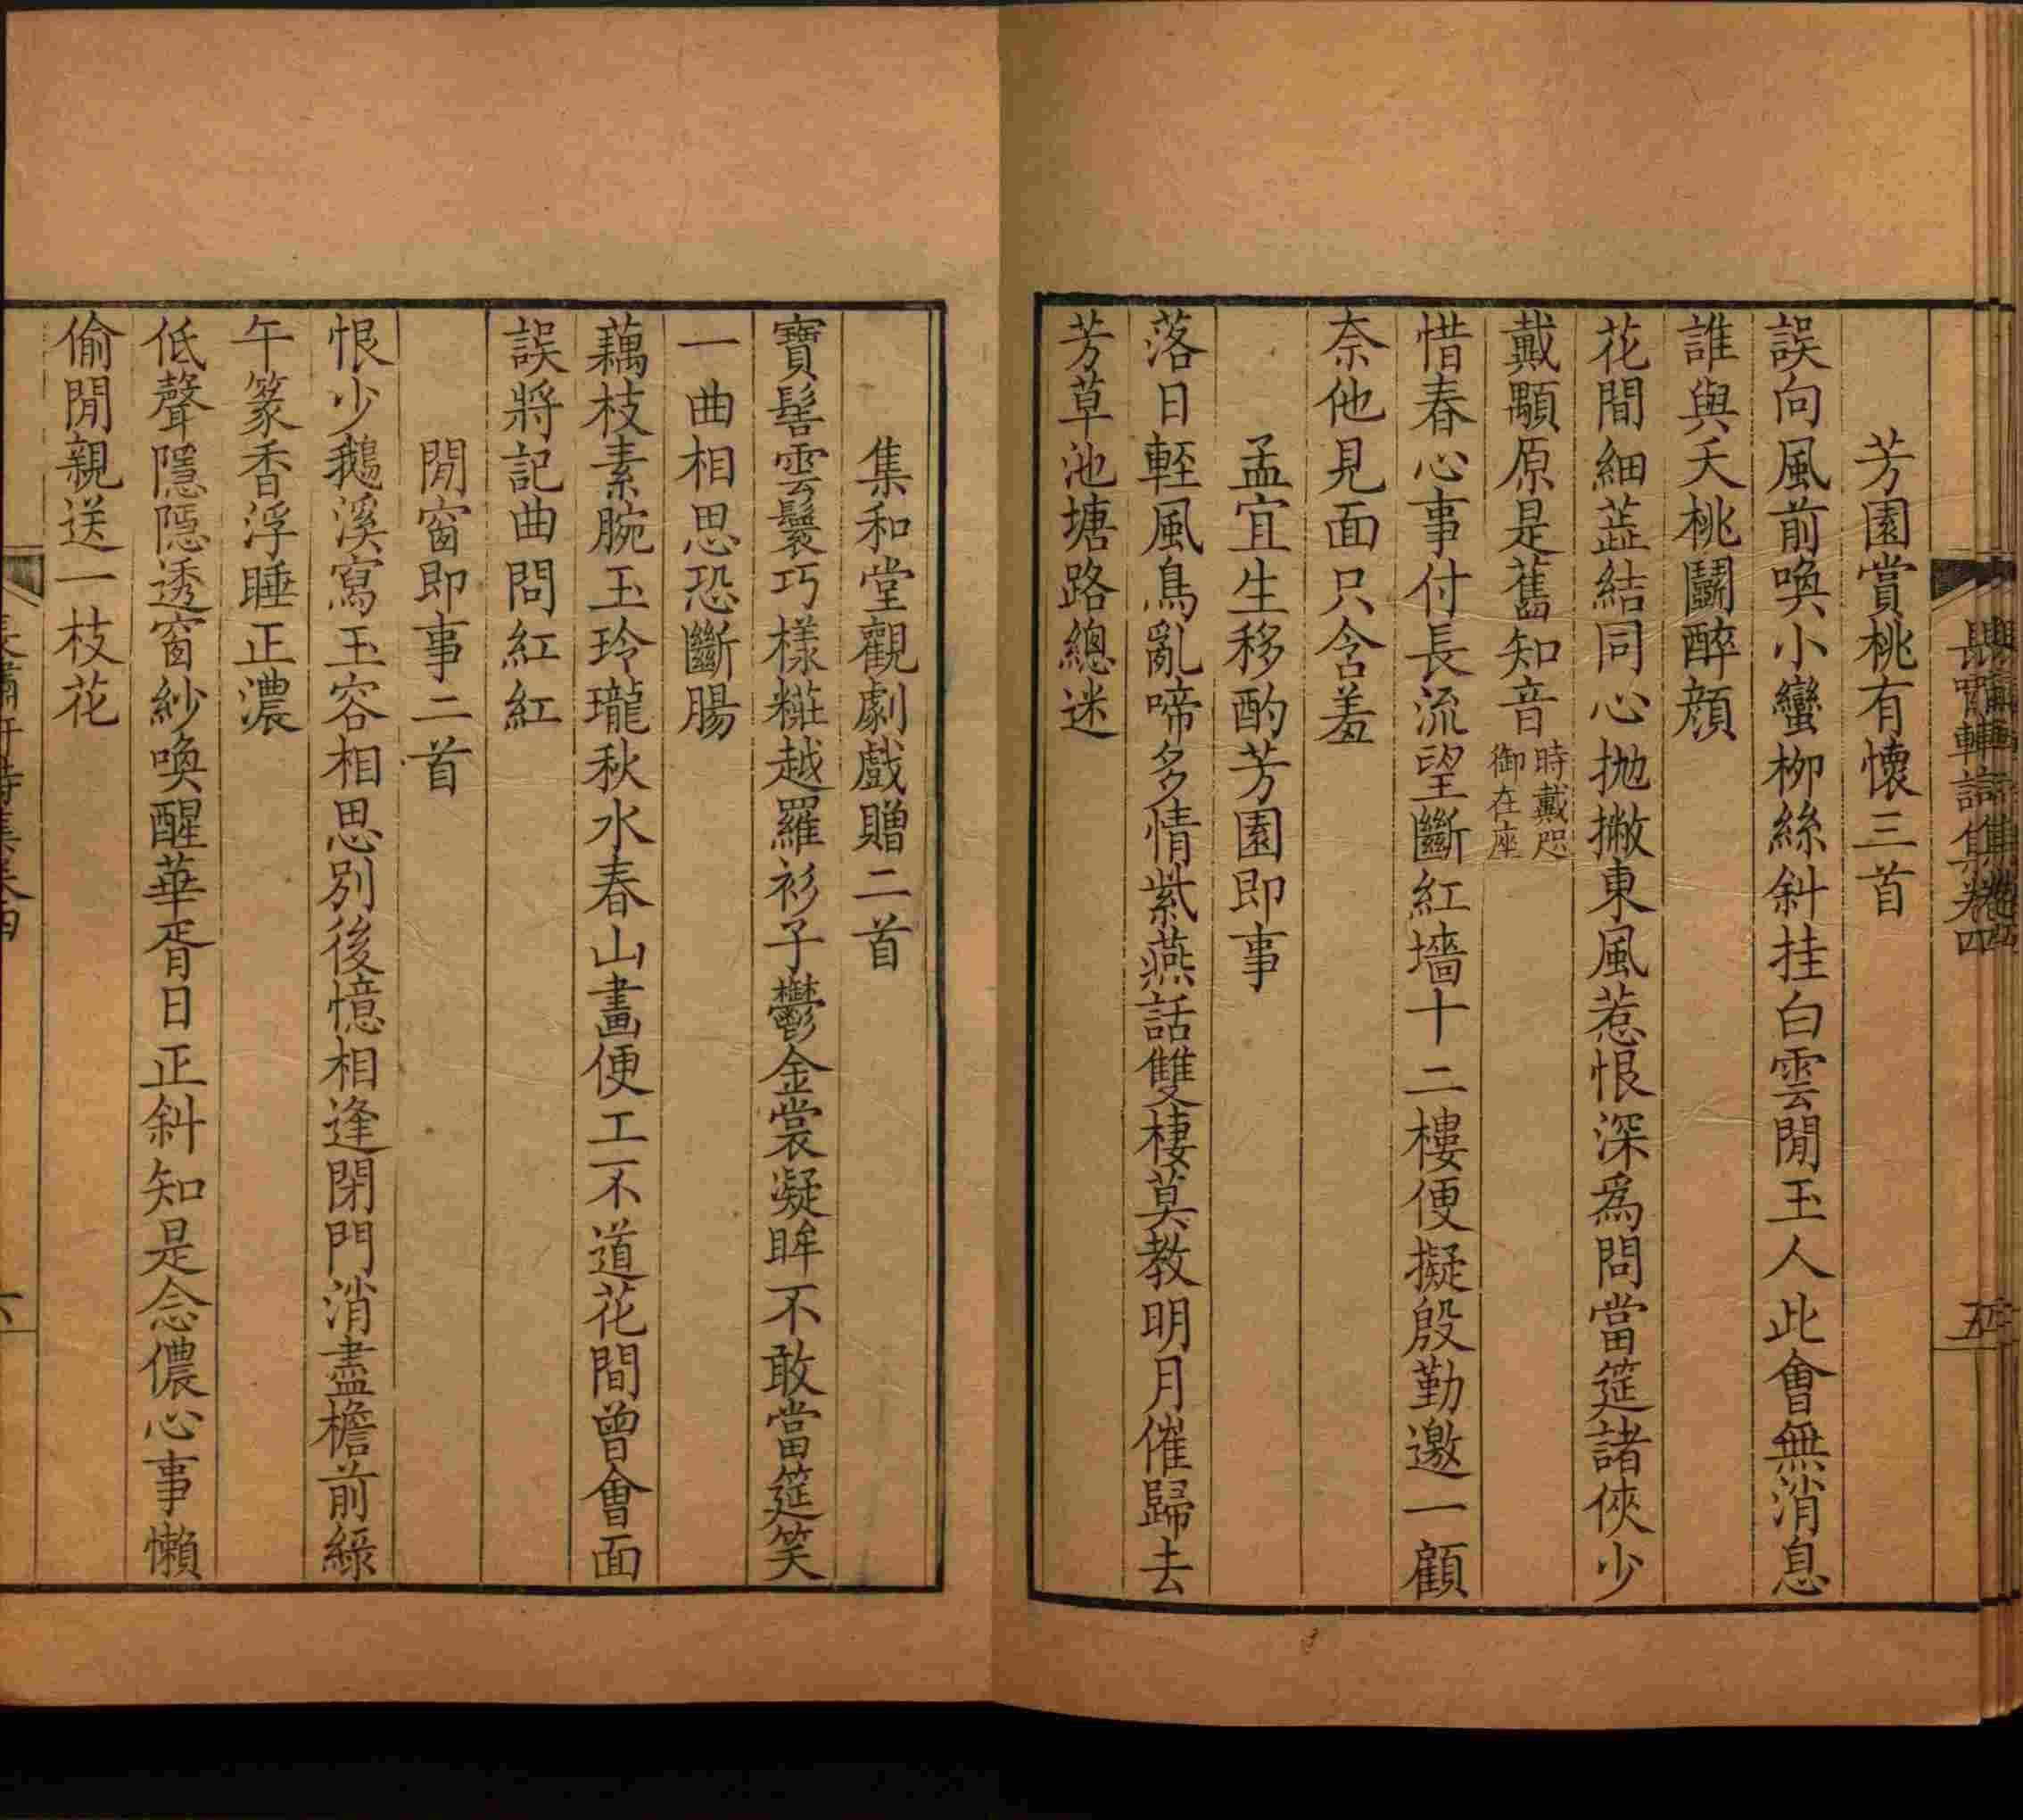 長嘯軒詩集卷四
五
芳園賞桃有懷三首
誤向風前喚小蠻柳絲斜挂白雲閒玉人此會無消息
誰與夭桃鬭醉顔
花間細蕋結同心抛撇東風惹恨深為問當筵諸俠少
戴顒原是舊知音時戴咫御在座
惜春心事付長流望斷紅墻十二樓便擬殷勤邀一顧
奈他見面只含羞
孟宜生移酌芳園即事
落日輕風鳥亂啼多情紫燕話雙棲莫教明月催歸去
芳草池塘路總迷
集和堂觀劇戲贈二首
寶髻雲鬟巧樣糚越羅衫子鬱金裳凝眸不敢當筵笑
一曲相思恐斷腸
藕枝素腕玉玲瓏秋水春山畫便工不道花間曾會面
誤將記曲問紅紅
閒窗即事二首
恨少鵝溪寫玉容相思別後憶相逢閉門消盡檐前綠
午篆香浮睡正濃
低聲隱隱透窗紗喚醒華胥日正斜知是念儂心事懶
偷閒親送一枝花
長嘯軒詩集卷四
六